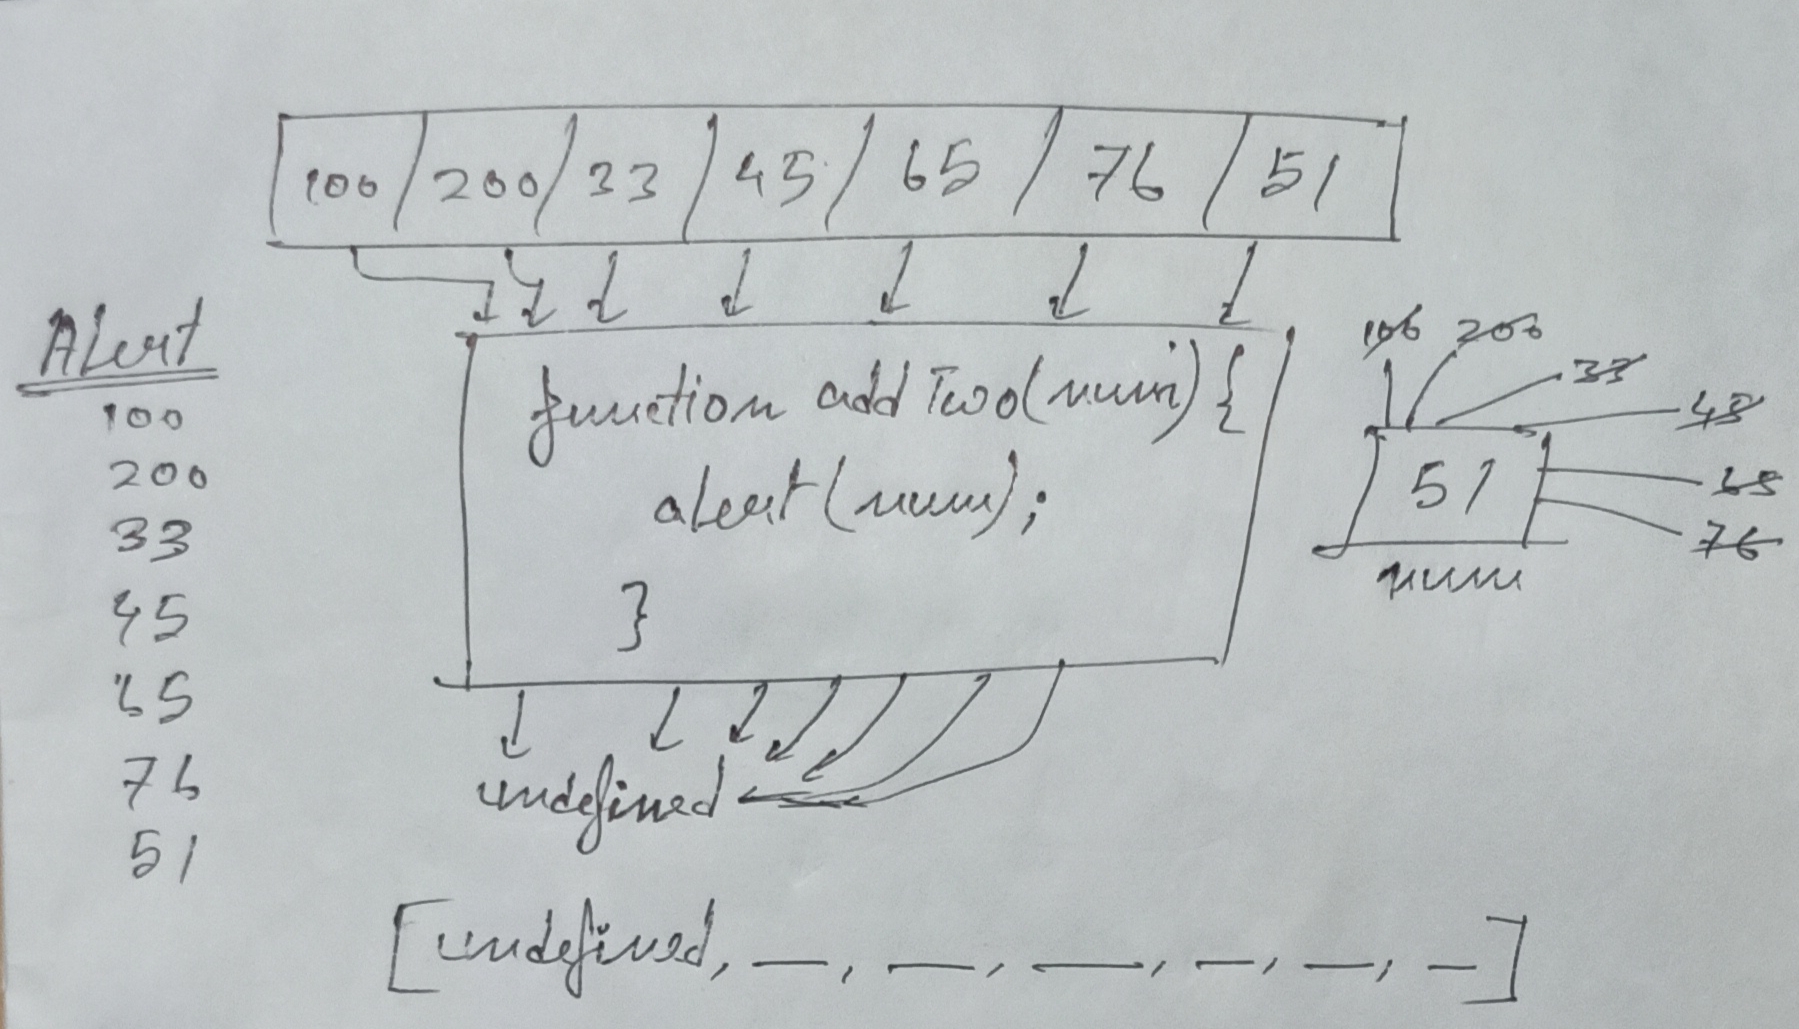 100 200 33 45 65 76 51
Alert
100
200
33
45
65
76
51
function addTwo(num) {
alert(num);
}
100 200
33
45
65
76
51
num
undefined
[undefined, —, —, —, —, —, —]